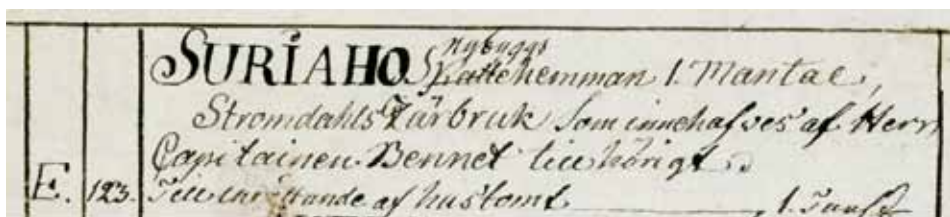 SURIAHO nybyggs Skattehemman 1. Mantal,
Stromdahls Järbruk som innehafves af Herr
Capitainen Bennet tillhörigt.
E. 123. Till inrättande af hustomt 1.